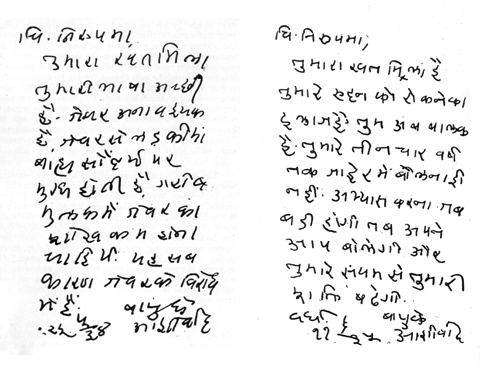 चि. निरुपमा,
तुमारा खत मिला
तुमारी भाषा अच्छी
है. जेवर अनावश्यक
है. जेवरसे लडकीयां
बाह्य सौंदर्य पर
मुग्ध होती है. गरीब
मुलकमें जेवर का
शोख कम होना
चाहिये. यह सब
कारण जेवरके विरोध
में है. बापुके
आशीर्वाद
चि. निरुपमा,
तुमारा खत मिला है
तुमारे को रोकनेका
तुम अब बालक
है. तुमारे तीन चार वर्ष
तक जाहेर में बोलना ही
नहीं. अभ्यास करना. जब
बडी होगी तब अपने
आप बोलेगी और
तुमारे संयम से तुमारी
शक्ति बढेगी.
वर्धा बापुके
आशीर्वाद